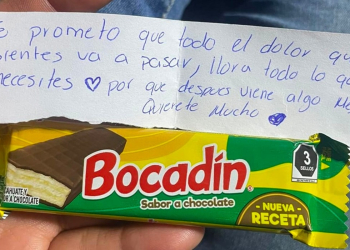 e prometo que todo el dolor que
sientes va a pasar, llora todo lo que
necesites ♡ por que despues viene algo
Quierete Mucho
Bocadín
Sabor a chocolate
NUEVA
RECETA
3
SELLOS
A CHOCOLATE